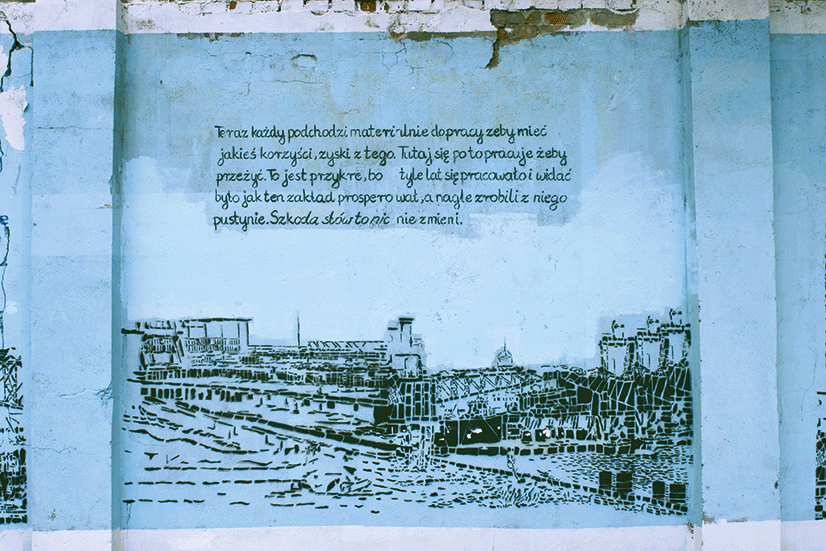 Teraz każdy podchodzi materialnie do pracy żeby mieć
jakieś korzyści, zyski z tego. Tutaj się po to pracuje żeby
przeżyć. To jest przykre, bo tyle lat się pracowało i widać
było jak ten zakład prosperował, a nagle zrobili z niego
pustynie. Szkoda słów to nic nie zmieni.